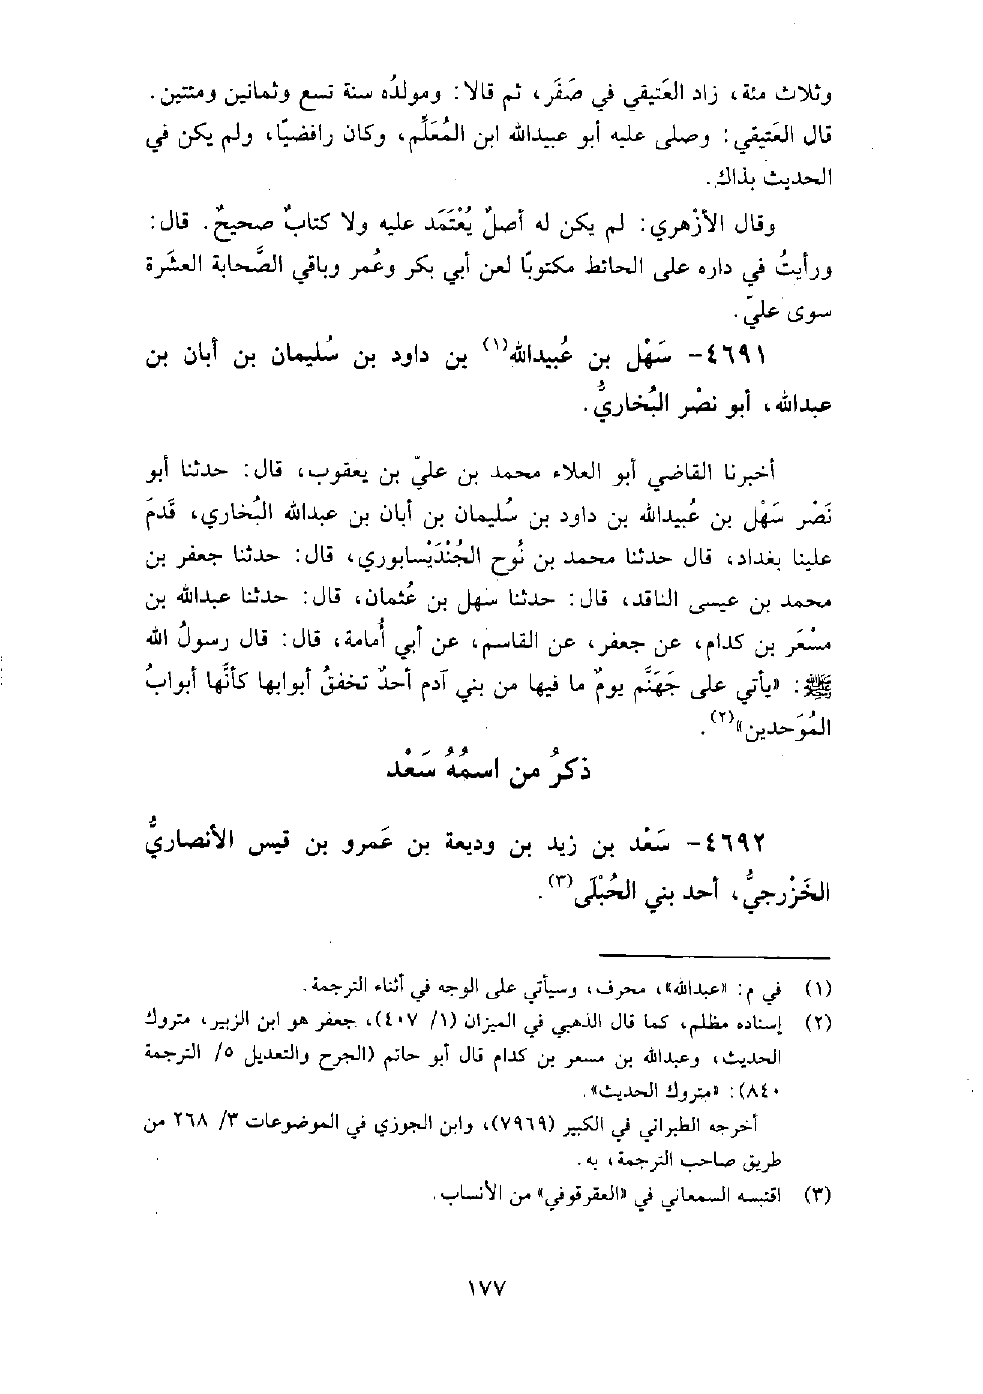 وثلاث مئة، زاد العَتيقي في صَفَر، ثم قالا: ومولدُه سنة تسع وثمانين ومئتين.
قال العَتيقي: وصلى عليه أبو عبيدالله ابن المُعَلِّم، وكان رافضيًا، ولم يكن في
الحديث بذاك.
وقال الأزْهري: لم يكن له أصلٌ يُعْتَمَد عليه ولا كتابٌ صحيحٌ. قال:
ورأيتُ في داره على الحائط مكتوبًا لعن أبي بكر وعُمر وباقي الصَّحابة العشَرة
سوى عليّ.
٤٦٩١- سَهْل بن عُبيدالله(١) بن داود بن سُليمان بن أبان بن
عبدالله، أبو نصْر البُخاريُّ.
أخبرنا القاضي أبو العلاء محمد بن عليّ بن يعقوب، قال: حدثنا أبو
نَصْر سَهْل بن عُبيدالله بن داود بن سُليمان بن أبان بن عبدالله البُخاري، قَدمَ
علينا بغداد، قال حدثنا محمد بن نُوح الجُنْدَيْسابوري، قال: حدثنا جعفر بن
محمد بن عيسى الناقد، قال: حدثنا سَهل بن عُثمان، قال: حدثنا عبدالله بن
مسْعَر بن كدام، عن جعفر، عن القاسم، عن أبي أُمامة، قال: قال رسولُ الله
ﷺ: «يأتي على جَهَنَّم يومٌ ما فيها من بني آدم أحدٌ تخفقُ أبوابها كأنَّها أبوابُ
المُوَحدين»(٢).
ذكرُ من اسمُهُ سَعْد
٤٦٩٢- سَعْد بن زيد بن وديعة بن عَمرو بن قيس الأنصاريُّ
الخَزْرجيُّ، أحد بني الحُبْلَى(٣).
(١) في م: «عبدالله»، محرف، وسيأتي على الوجه في أثناء الترجمة.
(٢) إسناده مظلم، كما قال الذهبي في الميزان (١/ ٤٠٧)، جعفر هو ابن الزبير، متروك
الحديث، وعبدالله بن مسعر بن كدام قال أبو حاتم (الجرح والتعديل ٥/ الترجمة
٨٤٠): «متروك الحديث».
أخرجه الطبراني في الكبير (٧٩٦٩)، وابن الجوزي في الموضوعات ٣/ ٢٦٨ من
طريق صاحب الترجمة، به.
(٣) اقتبسه السمعاني في «العقرقوفي» من الأنساب.
١٧٧